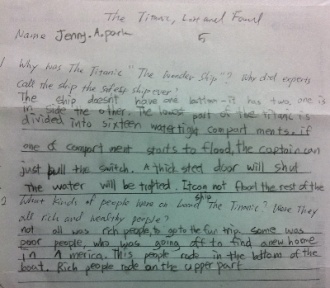 The Titanic, Lost and Found
Name Jenny. A. park 5
1 Why was The Titanic "The wonder ship"? Why did experts
call the ship the safest ship ever?
The ship doesn't have one bottom-it has two, one is
in side the other. The lowest part of the Titanic is
divided into sixteen watertight compart ments. if
one of compart ment starts to flood, the captain can
just pull the switch. A thick steel door will shut
The water will be It can not flood the rest of the
ship
2 What kinds of people were on board The Titanic? Were They
all rich and healthy people?
not all was rich people, to go to the trip. some was
poor people, who was going off to find a new home
in A merica. This people rode in the bottom of the
boat. Rich people rode on the upper part